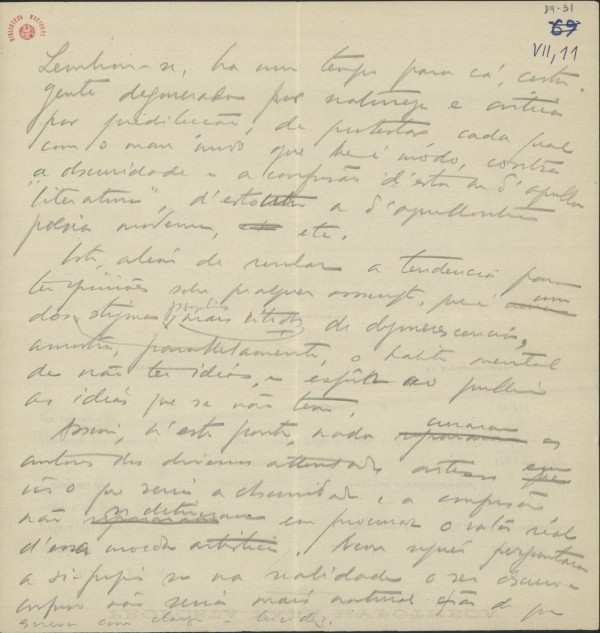 BIBLIOTECA NACIONAL
89-31
69
VII, 11
Lembrou-se, ha um tempo para cá, certa
gente degenerada por natureza e critica
por predilecção, de protestar, cada qual
com o mau modo que he é módo, contra
a obscuridade e a confusão d'esta ou d'aquella
"literatura", d'esta ou d'aquell'outra
poesia moderna, etc.
Isto, alem de revelar a tendencia para
ter opiniões sobre qualquer assumpto, que é um
dos stigmas mais de degenerescencia,
amostra, parallelamente, o habito mental
de não ter idéas, e expôr ao publico
as idéas que se não tem.
Assim, n'este ponto, nada os
autores dos diversos attentados
não o que seria a obscuridade e a confusão
não se detiveram em procurar o valor real
d'essa moeda artistica. Nem sequer perguntaram
a si-proprios se na realidade o ser obscuro
confuso não seria mais natural do que
escrever com clareza e lucidez.